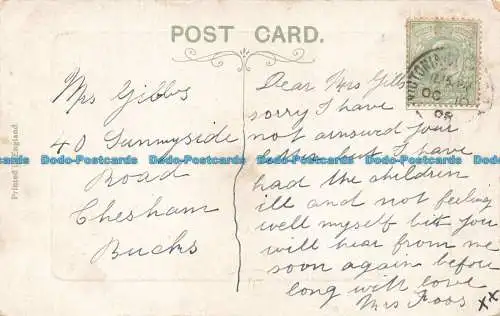 POST CARD.
Mrs Gibbs
40 Sunnyside
Road
Chesham
Bucks
Printed in England
Dear Mrs Gibbs
sorry I have
not answed your
letter but I have
had the children
ill and not feeling
well myself but you
will hear from me
soon again before
long with love
Mrs Foos xx
OC
08
Dodo-Postcards Dodo-Postcards Dodo-Postcards Dodo-Postcards Dodo-Postcards